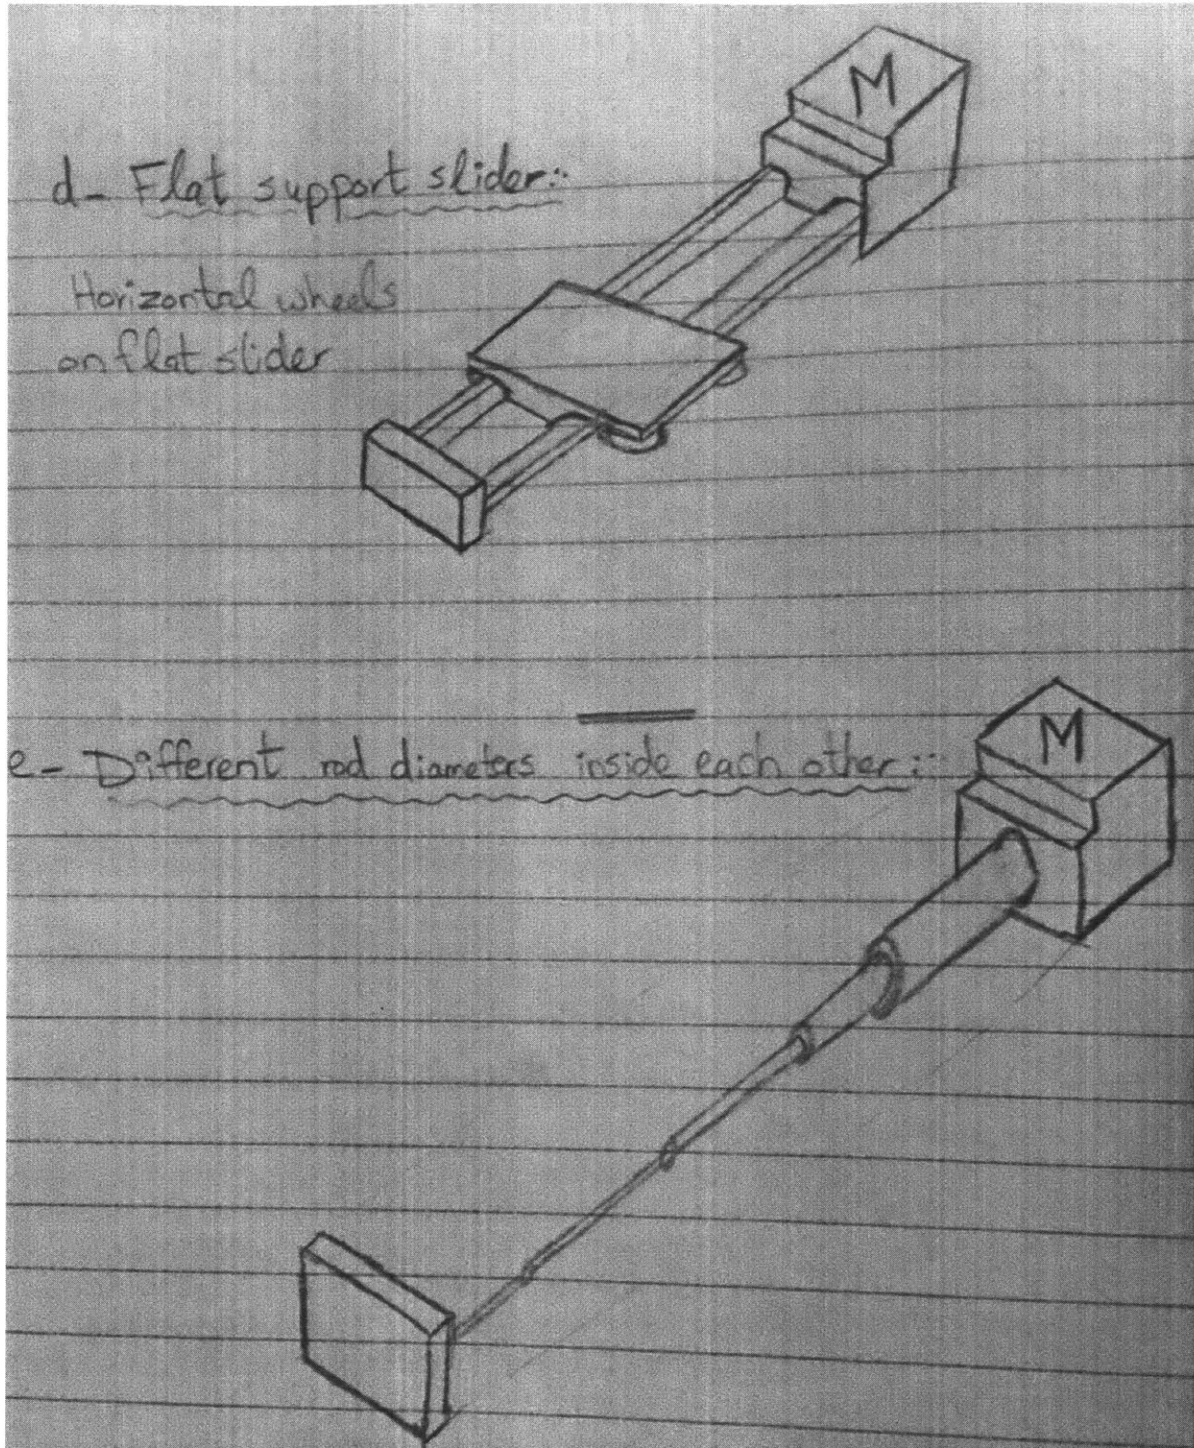 M
d- Flat support slider:-
Horizontal wheels
on flat slider
M
e- Different rod diameters inside each other:-